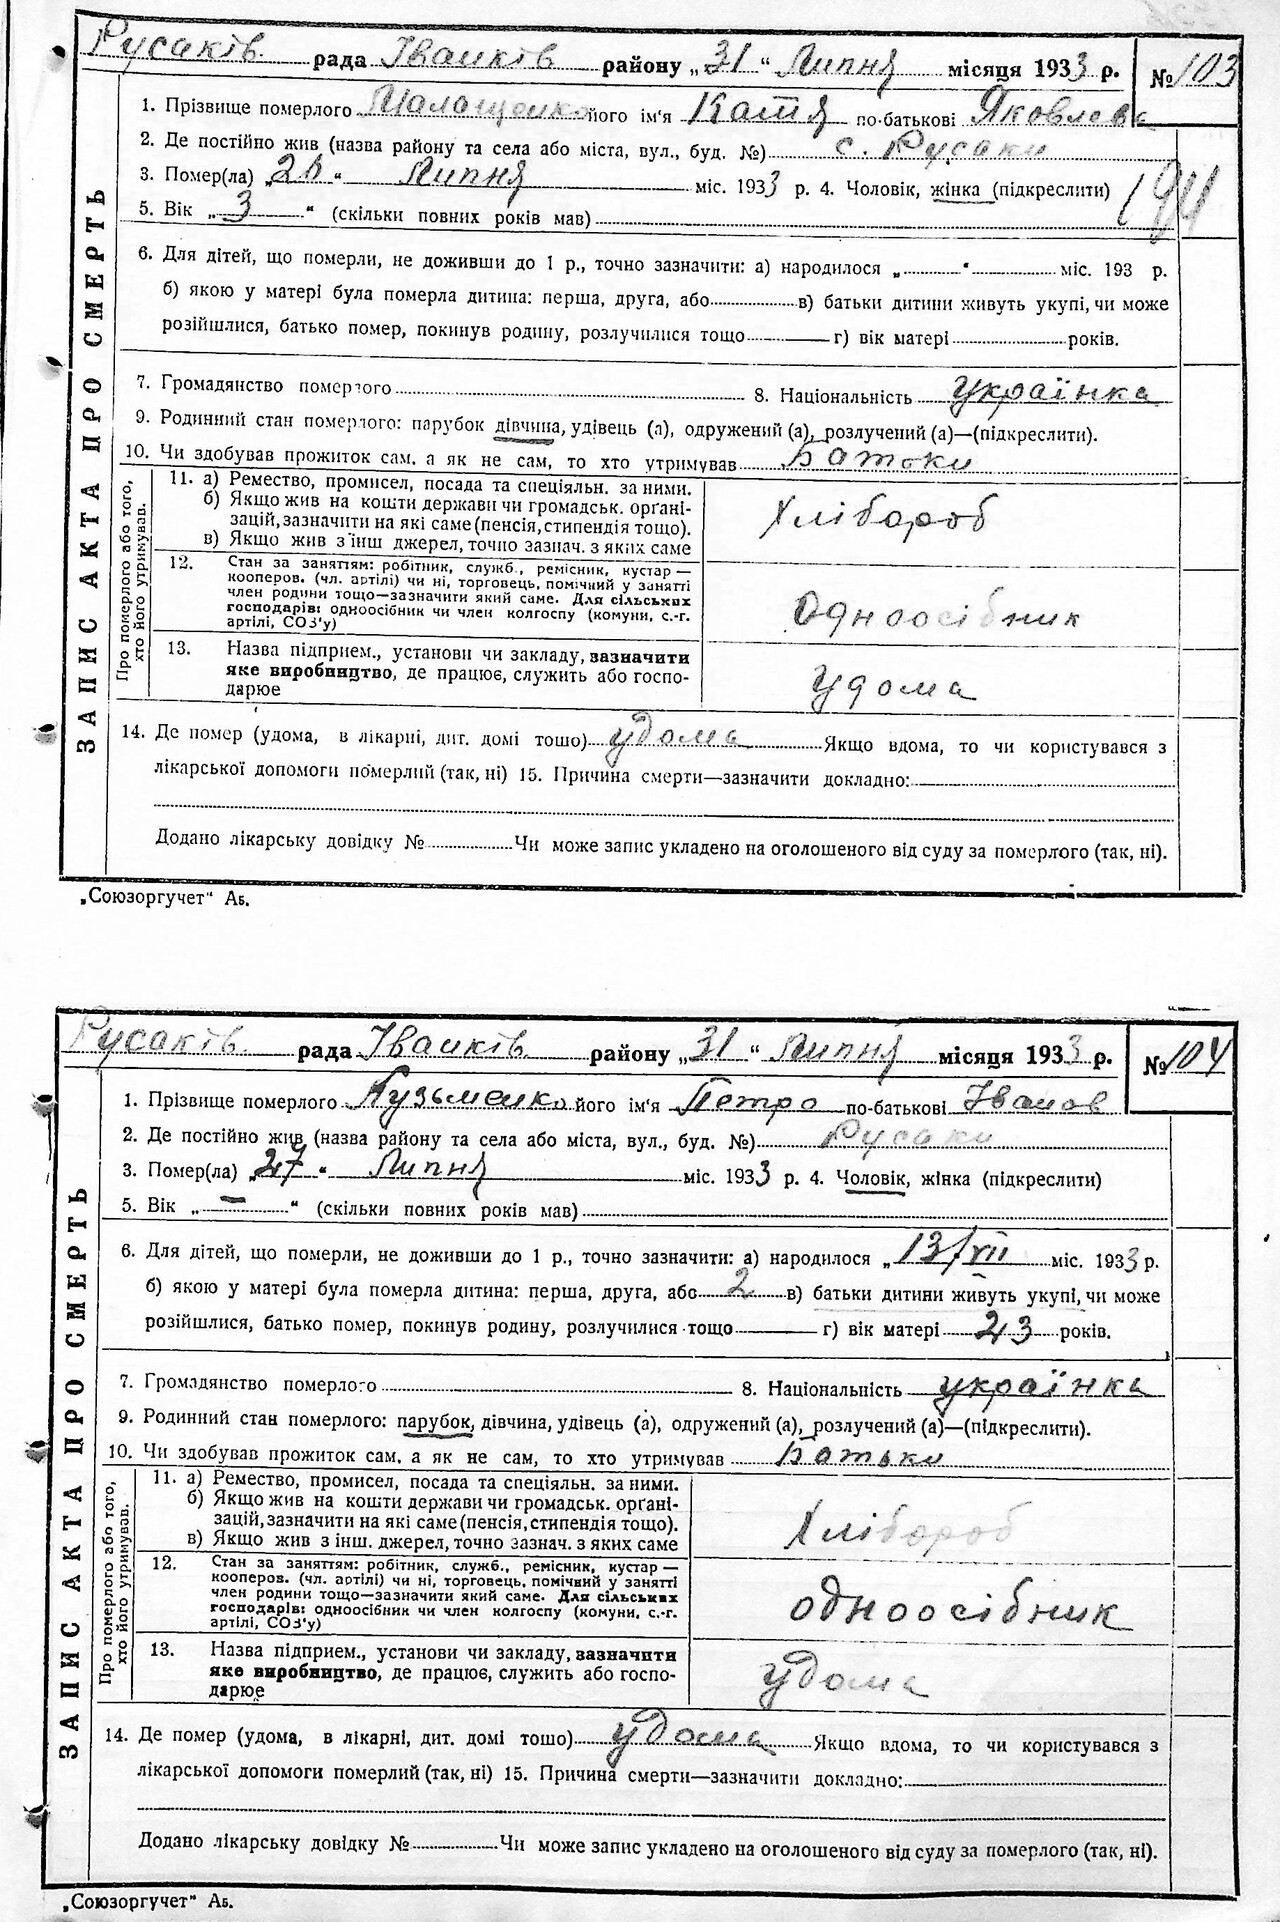 Русаків рада Іванків району „31“ Липня місяця 1933 р. № 103
1. Прізвище померлого Малащенко його ім'я Катя по-батькові Яковлевн
2. Де постійно жив (назва району та села або міста, вул., буд. №) с. Русаки
3. Помер(ла) „ “ Липня міс. 1933 р. 4. Чоловік, жінка (підкреслити)
5. Вік „ 3 “ (скільки повних років мав)
6. Для дітей, що померли, не доживши до 1 р., точно зазначити: а) народилося „ “ міс. 193 р.
б) якою у матері була померла дитина: перша, друга, або в) батьки дитини живуть укупі, чи може
розійшлися, батько помер, покинув родину, розлучилися тощо г) вік матері років.
7. Громадянство померлого 8. Національність українка
9. Родинний стан померлого: парубок дівчина, удівець (а), одружений (а), розлучений (а)—(підкреслити).
10. Чи здобував прожиток сам, а як не сам, то хто утримував Батьки
ЗАПИС АКТА ПРО СМЕРТЬ
Про померлого або того,
хто його утримував.
11. а) Ремество, промисел, посада та спеціяльн. за ними.
б) Якщо жив на кошти держави чи громадськ. орґані-
зацій, зазначити на які саме (пенсія, стипендія тощо).
в) Якщо жив з інш джерел, точно зазнач. з яких саме
Хлібороб
12. Стан за заняттям: робітник, служб., ремісник, кустар —
кооперов. (чл. артілі) чи ні, торговець, помічний у занятті
член родини тощо—зазначити який саме. Для сільських
господарів: одноосібник чи член колгоспу (комуни, с.-г.
артілі, СОЗ'у)
Одноосібник
13. Назва підприєм., установи чи закладу, зазначити
яке виробництво, де працює, служить або госпо-
дарює
удома
14. Де помер (удома, в лікарні, дит. домі тошо) удома Якщо вдома, то чи користувався з
лікарської допомоги померлий (так, ні) 15. Причина смерти—зазначити докладно:
Додано лікарську довідку № Чи може запис укладено на оголошеного від суду за померлого (так, ні).
„Союзоргучет“ Аб.
Русаків рада Іванків району „31“ Липня місяця 1933 р. № 104
1. Прізвище померлого Кузьменко його ім'я Петро по-батькові Іванов
2. Де постійно жив (назва району та села або міста, вул., буд. №) Русаки
3. Помер(ла) „27“ Липня міс. 1933 р. 4. Чоловік, жінка (підкреслити)
5. Вік „ — “ (скільки повних років мав)
6. Для дітей, що померли, не доживши до 1 р., точно зазначити: а) народилося „13/VII міс. 1933 р.
б) якою у матері була померла дитина: перша, друга, або 2 в) батьки дитини живуть укупі, чи може
розійшлися, батько помер, покинув родину, розлучилися тощо г) вік матері 23 років.
7. Громадянство померлого 8. Національність українка
9. Родинний стан померлого: парубок, дівчина, удівець (а), одружений (а), розлучений (а)—(підкреслити).
10. Чи здобував прожиток сам, а як не сам, то хто утримував Батьки
ЗАПИС АКТА ПРО СМЕРТЬ
Про померлого або того,
хто його утримував.
11. а) Ремество, промисел, посада та спеціяльн. за ними.
б) Якщо жив на кошти держави чи громадськ. орґані-
зацій, зазначити на які саме (пенсія, стипендія тощо).
в) Якщо жив з інш. джерел, точно зазнач. з яких саме
Хлібороб
12. Стан за заняттям: робітник, служб., ремісник, кустар —
кооперов. (чл. артілі) чи ні, торговець, помічний у занятті
член родини тощо—зазначити який саме. Для сільських
господарів: одноосібник чи член колгоспу (комуни, с.-г.
артілі, СОЗ'у)
одноосібник
13. Назва підприєм., установи чи закладу, зазначити
яке виробництво, де працює, служить або госпо-
дарює
удома
14. Де помер (удома, в лікарні, дит. домі тошо) удома Якщо вдома, то чи користувався з
лікарської допомоги померлий (так, ні) 15. Причина смерти—зазначити докладно:
Додано лікарську довідку № Чи може запис укладено на оголошеного від суду за померлого (так, ні).
„Союзоргучет“ Аб.